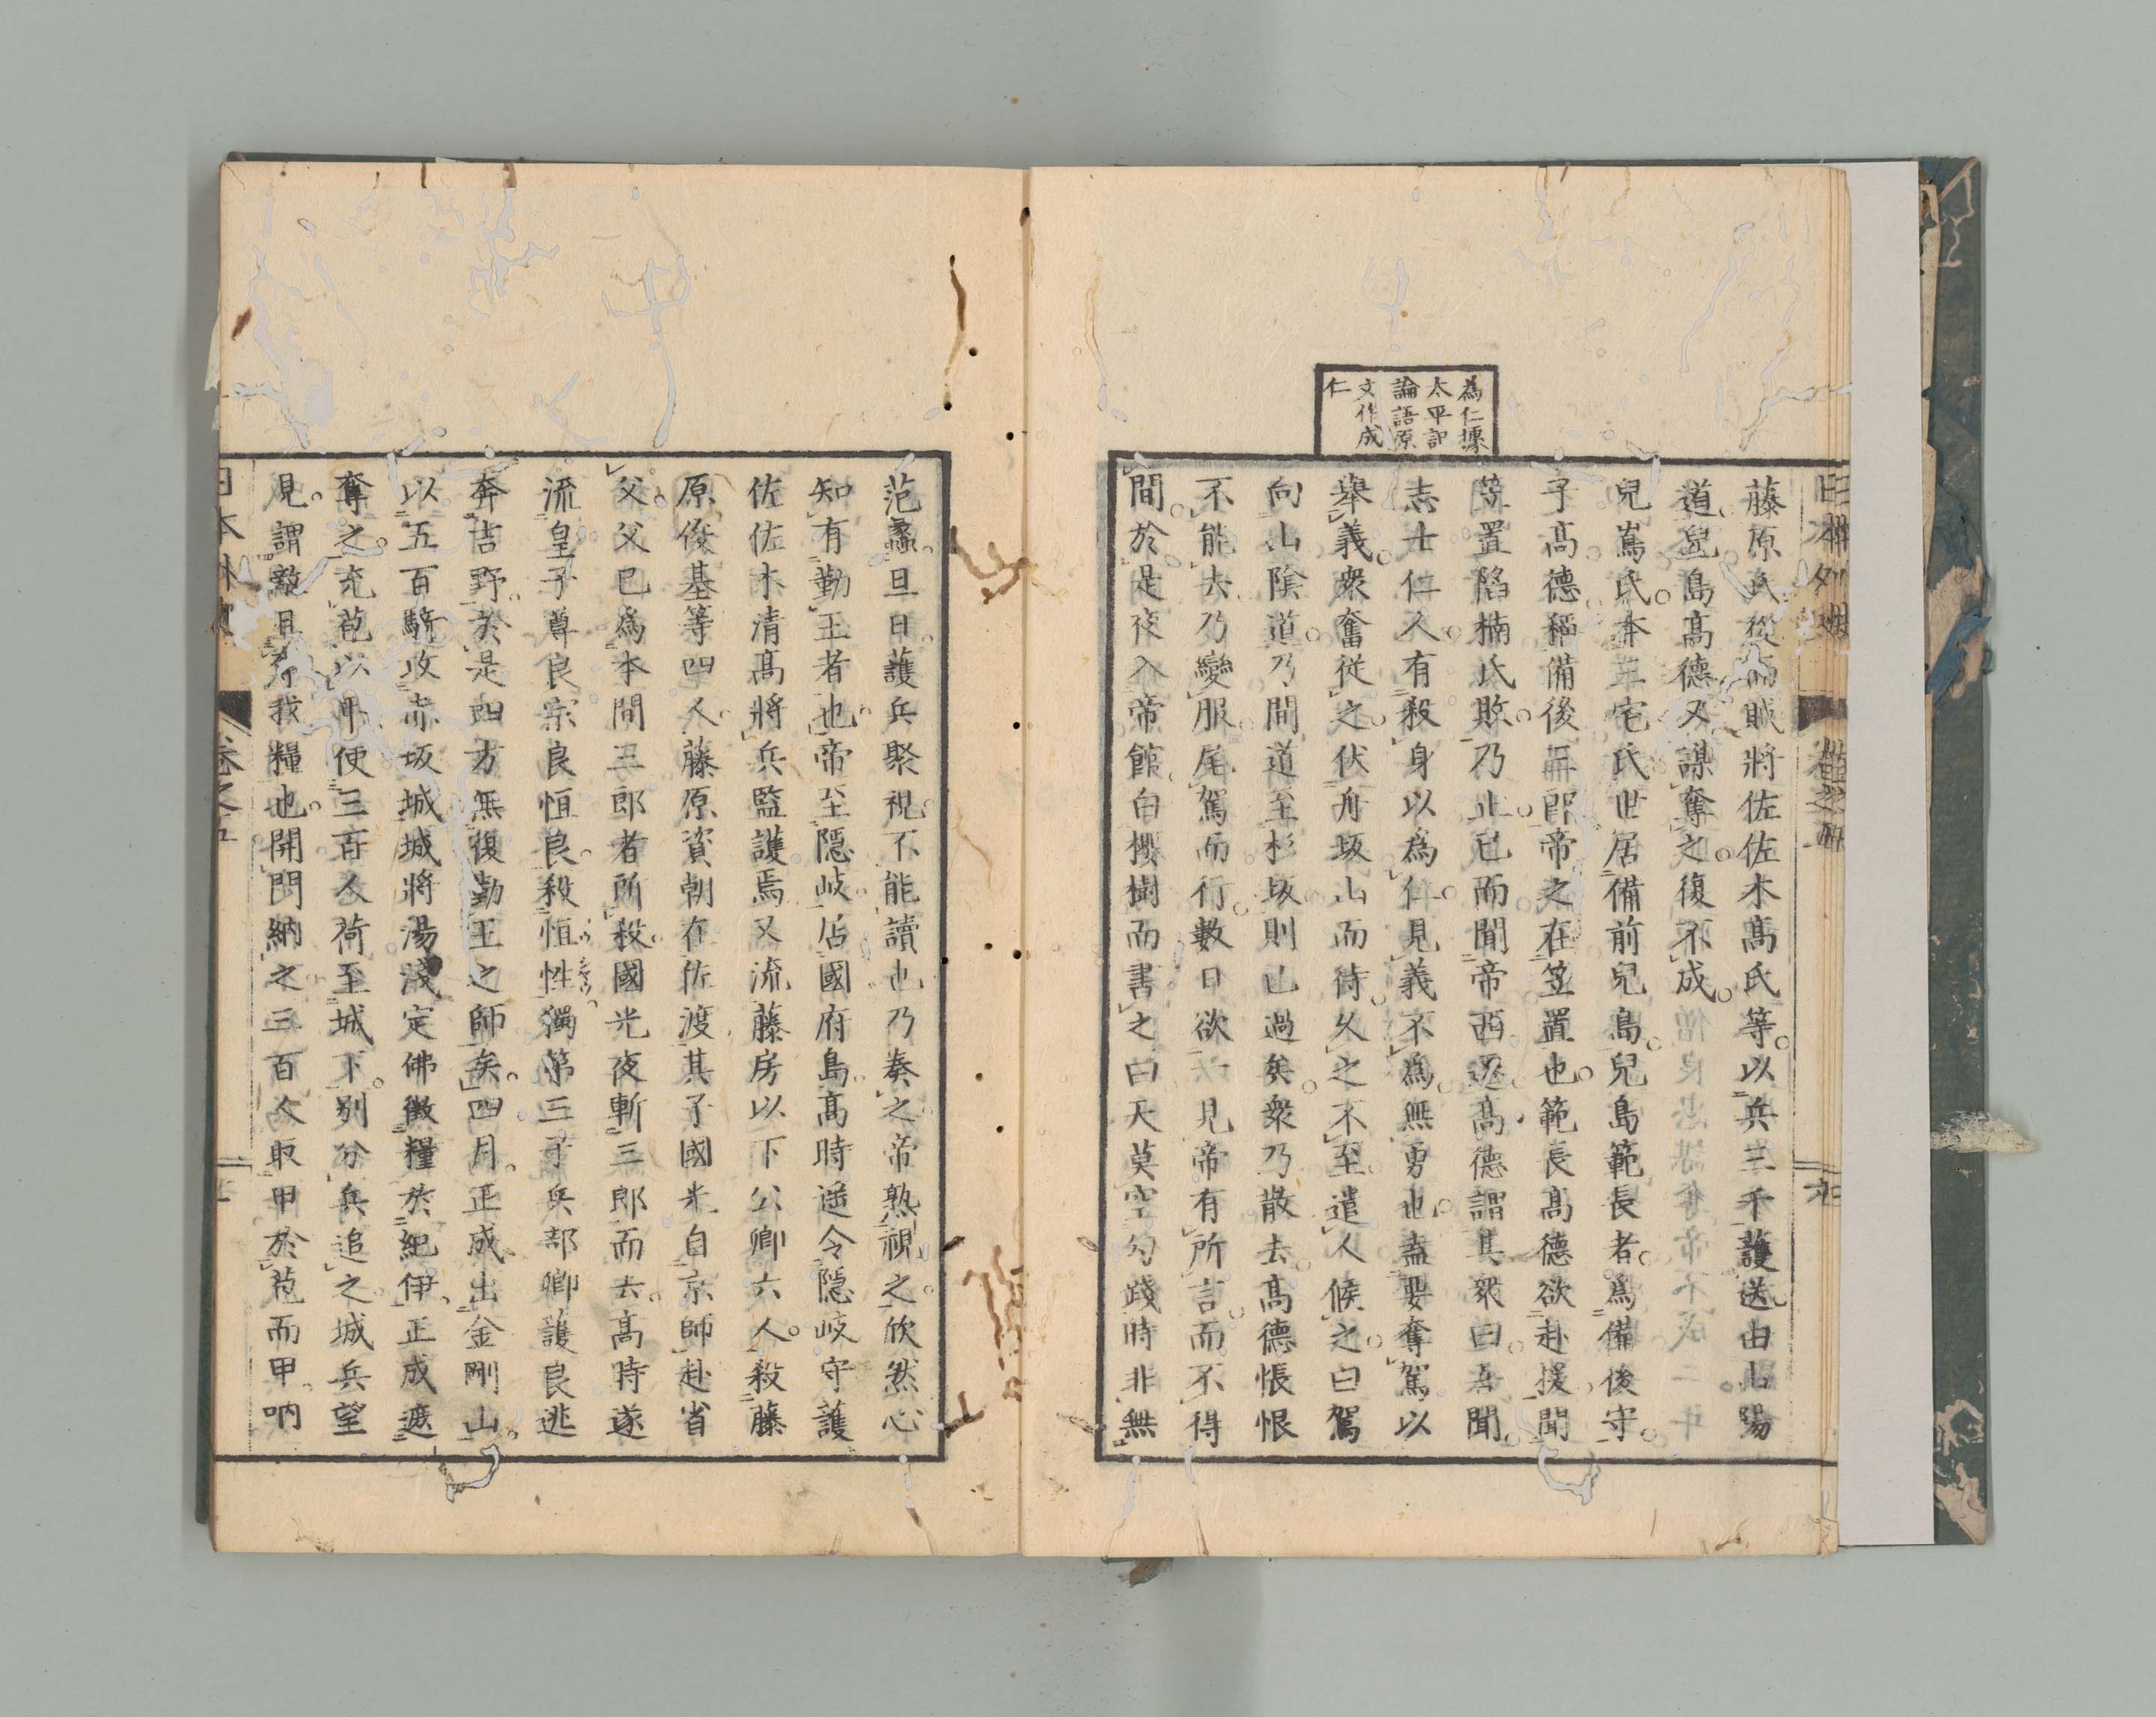 為仁據
太平記
論語原
文作成
仁
藤原氏從而賊將佐佐木高氏等以兵三千護送由山陽
道兒島高德又謀奪之復不成
兒島氏本三宅氏世居備前兒島兒島範長者爲備後守
子高德稱備後三郎帝之在笠置也範長高德欲赴援聞
笠置陷楠氏敗乃止已而聞帝西遷高德謂其衆曰吾聞
志士仁人有殺身以爲仁見義不爲無勇也盍要奪駕以
舉義衆奮從之伏舟坂山而待久之不至遣人候之曰駕
向山陰道乃間道至杉坂則已過矣衆乃散去高德悵恨
不能去乃變服尾駕而行數日欲一見帝有所言而不得
間於是夜入帝館白櫻樹而書之曰天莫空勾踐時非無
范蠡旦日護兵聚視不能讀也乃奏之帝熟視之欣然心
知有勤王者也帝至隱岐居國府島高時遥令隱岐守護
佐佐木清高將兵監護焉又流藤房以下公卿六人殺藤
原俊基等四人藤原資朝在佐渡其子國光自京師赴省
父父已爲本間三郎者所殺國光夜斬三郎而去高時遂
流皇子尊良宗良恒良殺恒性獨第三子兵部卿護良逃
奔吉野於是四方無復勤王之師矣四月正成出金剛山
以五百騎攻赤坂城城將湯淺定佛徵糧於紀伊正成遮
奪之充苞以甲使三百人荷至城下別分兵追之城兵望
見謂敵且奪我糧也開門納之三百人取甲於苞而甲吶
日本外史
卷之五